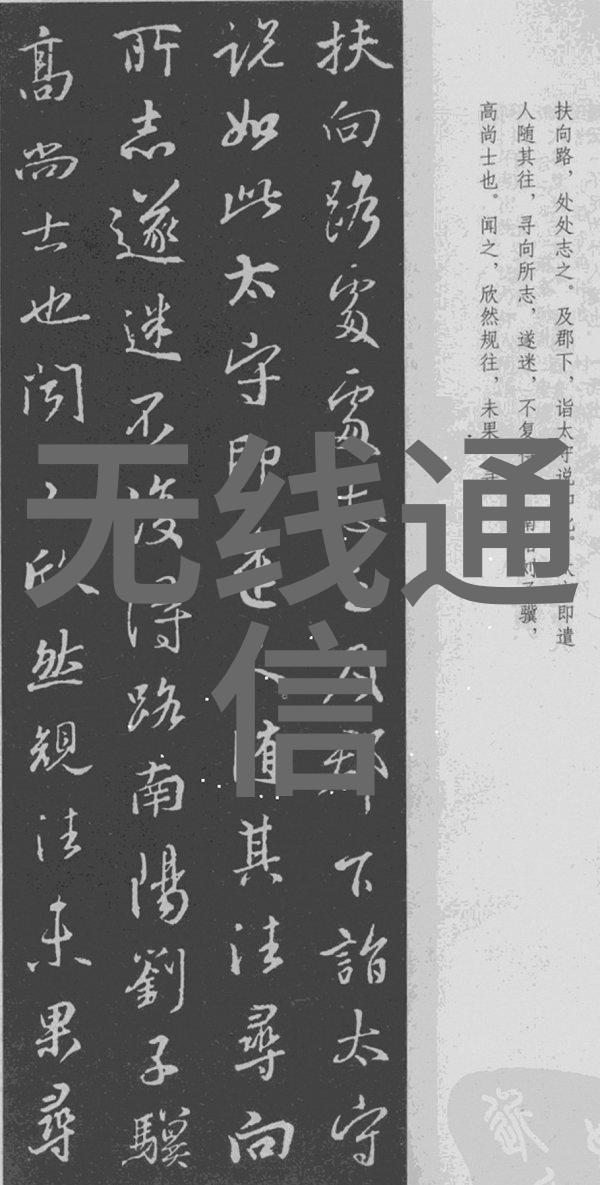 扶向路，处处志之。及郡下，诣太守说如此。太守即遣
人随其往，寻向所志，遂迷，不复得 刘子骥，
高尚士也。闻之，欣然规往，未果
扶向路處處志之及郡下詣太守
説如此太守即遣人随其往尋向
所志遂迷不復得路南陽劉子驥
高尚士也聞之欣然規往未果尋
无线通
信